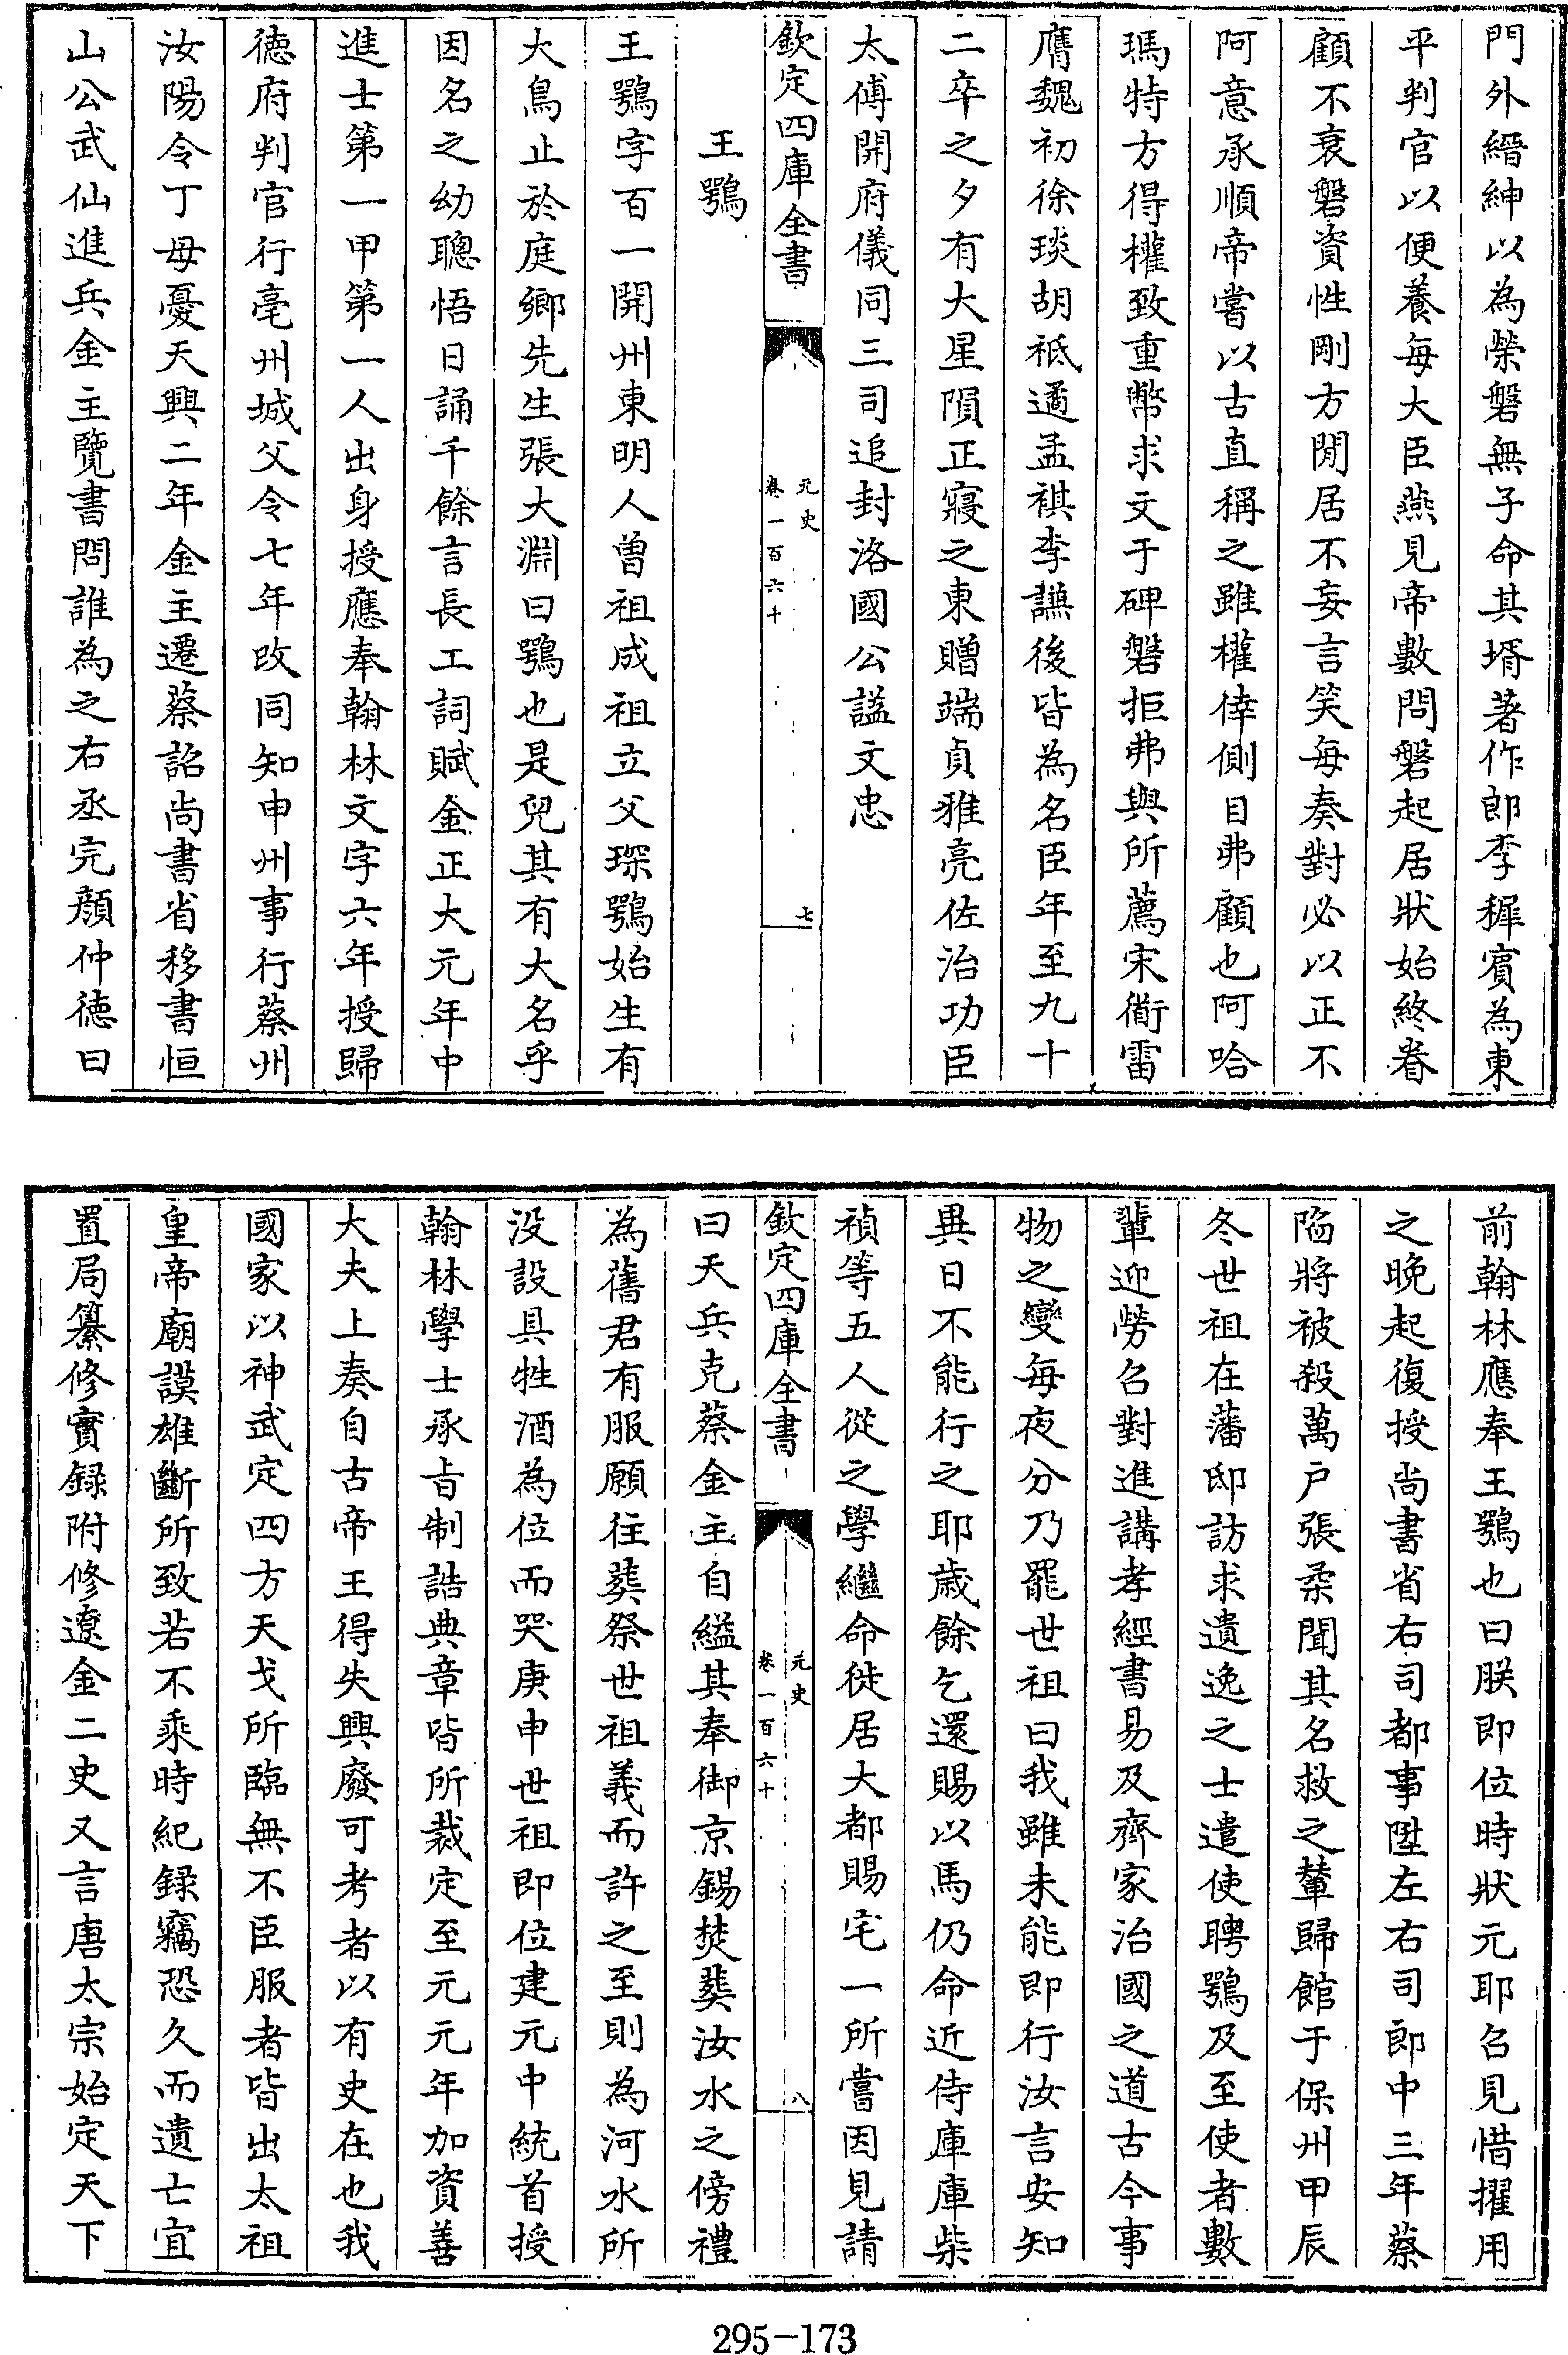 門外縉紳以為榮磐無子命其壻著作郎李穉賓為東
平判官以便養每大臣燕見帝數問磐起居狀始終眷
顧不衰磐資性剛方閒居不妄言笑每奏對必以正不
阿意承順帝嘗以古直稱之雖權倖側目弗顧也阿哈
瑪特方得權致重幣求文于碑磐拒弗與所薦宋衜雷
膺魏初徐琰胡祗遹孟祺李謙後皆為名臣年至九十
二卒之夕有大星隕正寢之東贈端貞雅亮佐治功臣
太傅開府儀同三司追封洛國公謚文忠
欽定四庫全書
元史
卷一百六十
七
王鶚
王鶚字百一開州東明人曾祖成祖立父琛鶚始生有
大鳥止於庭鄉先生張大淵曰鶚也是兒其有大名乎
因名之幼聰悟日誦千餘言長工詞賦金正大元年中
進士第一甲第一人出身授應奉翰林文字六年授歸
德府判官行亳州城父令七年改同知申州事行蔡州
汝陽令丁母憂天興二年金主遷蔡詔尚書省移書恒
山公武仙進兵金主覽書問誰為之右丞完顏仲德曰
前翰林應奉王鶚也曰朕即位時狀元耶召見惜擢用
之晚起復授尚書省右司都事陞左右司郎中三年蔡
陷將被殺萬户張柔聞其名救之輦歸館于保州甲辰
冬世祖在藩邸訪求遺逸之士遣使聘鶚及至使者數
輩迎勞召對進講孝經書易及齊家治國之道古今事
物之變每夜分乃罷世祖曰我雖未能即行汝言安知
異日不能行之耶歲餘乞還賜以馬仍命近侍庫庫柴
禎等五人從之學繼命徙居大都賜宅一所嘗因見請
欽定四庫全書
元史
卷一百六十
八
曰天兵克蔡金主自縊其奉御京錫焚葬汝水之傍禮
為舊君有服願往葬祭世祖義而許之至則為河水所
没設具牲酒為位而哭庚申世祖即位建元中統首授
翰林學士承旨制誥典章皆所裁定至元元年加資善
大夫上奏自古帝王得失興廢可考者以有史在也我
國家以神武定四方天戈所臨無不臣服者皆出太祖
皇帝廟謨雄斷所致若不乘時紀録竊恐久而遺亡宜
置局纂修實録附修遼金二史又言唐太宗始定天下
295-173